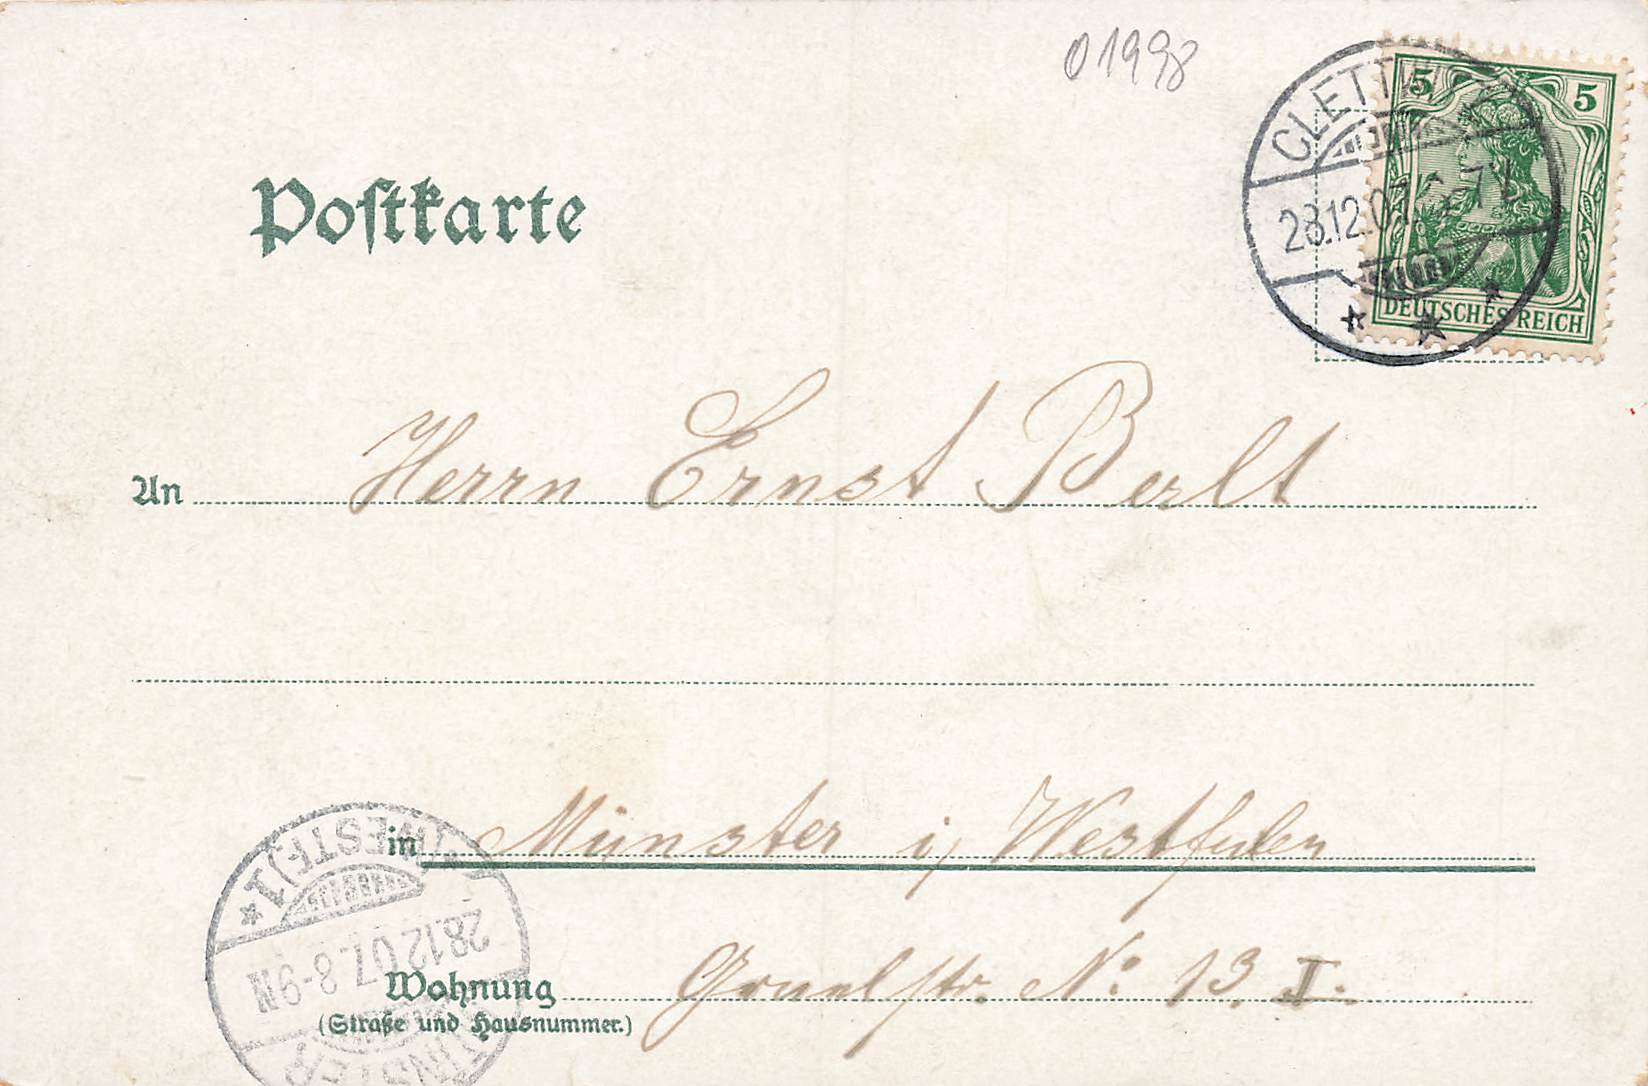 01998
5 5
CLETTWITZ
28.12.07. 6-7 V.
DEUTSCHES REICH
Postkarte
An Herrn Ernst Berlt
in Münster i/ Westfalen
Wohnung Graelstr. No 13. I.
(Straße und Hausnummer.)
MÜNSTER (WESTF.) 1
28.12.07. 8-9N